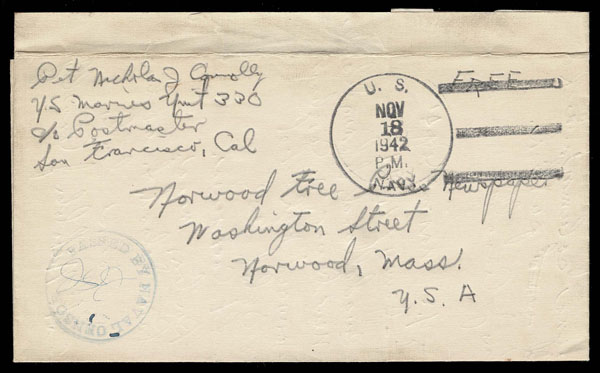 Pvt Nicholas J Connolly
U.S Marines Unit 330
c/o Postmaster
San Francisco, Cal
FREE
U. S.
NOV
18
1942
P.M.
NAVY
Norwood Free Press Newspaper
Washington Street
Norwood, Mass.
U.S.A
PASSED BY NAVAL CENSOR